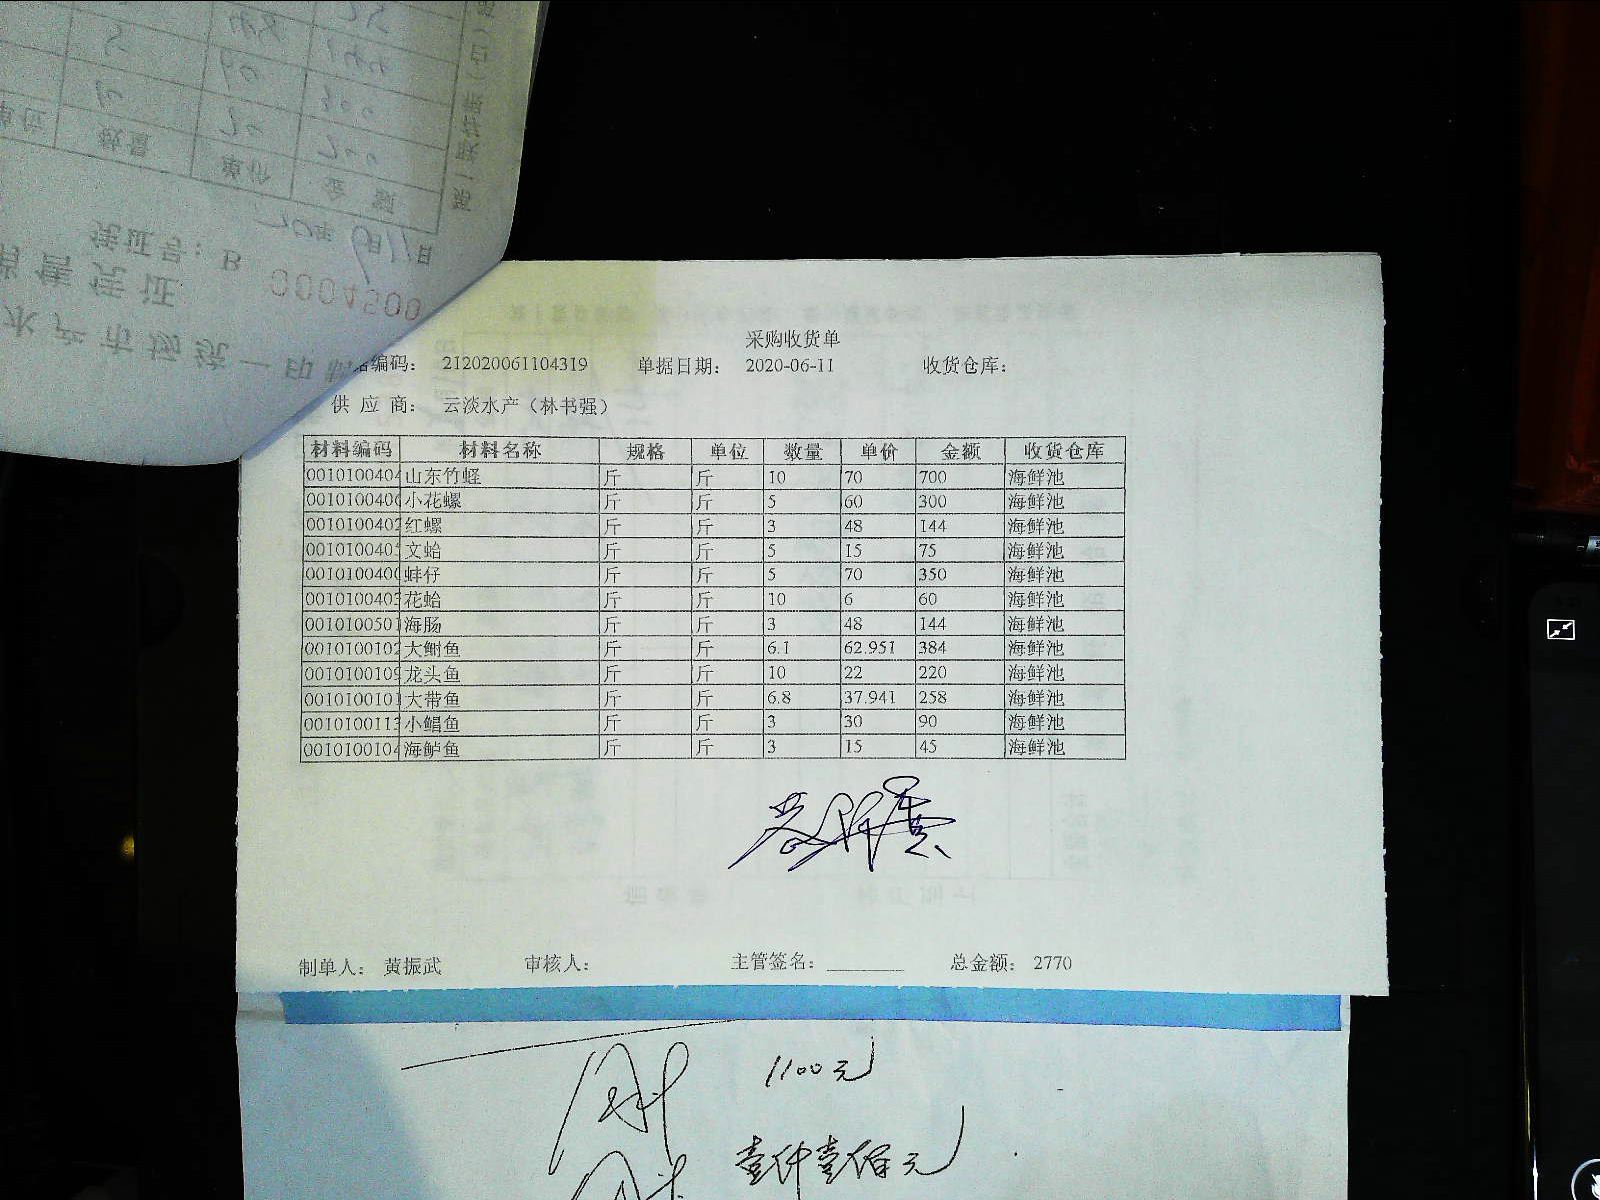 采购收货单
编码： 212020061104319 单据日期： 2020-06-11 收货仓库：
供 应 商： 云淡水产（林书强）
材料编码 材料名称 规格 单位 数量 单价 金额 收货仓库
0010100404 山东竹蛏 斤 斤 10 70 700 海鲜池
001010040 小花螺 斤 斤 5 60 300 海鲜池
001010040 红螺 斤 斤 3 48 144 海鲜池
001010040 文蛤 斤 斤 5 15 75 海鲜池
001010040 蚌仔 斤 斤 5 70 350 海鲜池
001010040 花蛤 斤 斤 10 6 60 海鲜池
001010050 海肠 斤 斤 3 48 144 海鲜池
001010010 大鲥鱼 斤 斤 6.1 62.951 384 海鲜池
001010010 龙头鱼 斤 斤 10 22 220 海鲜池
001010010 大带鱼 斤 斤 6.8 37.941 258 海鲜池
001010011 小鲳鱼 斤 斤 3 30 90 海鲜池
001010010 海鲈鱼 斤 斤 3 15 45 海鲜池
制单人： 黄振武 审核人： 主管签名： 总金额： 2770
1100元
壹仟壹佰元
凭证号：B 0004500
售凭证
水产市场统一印
数量 单价 金额